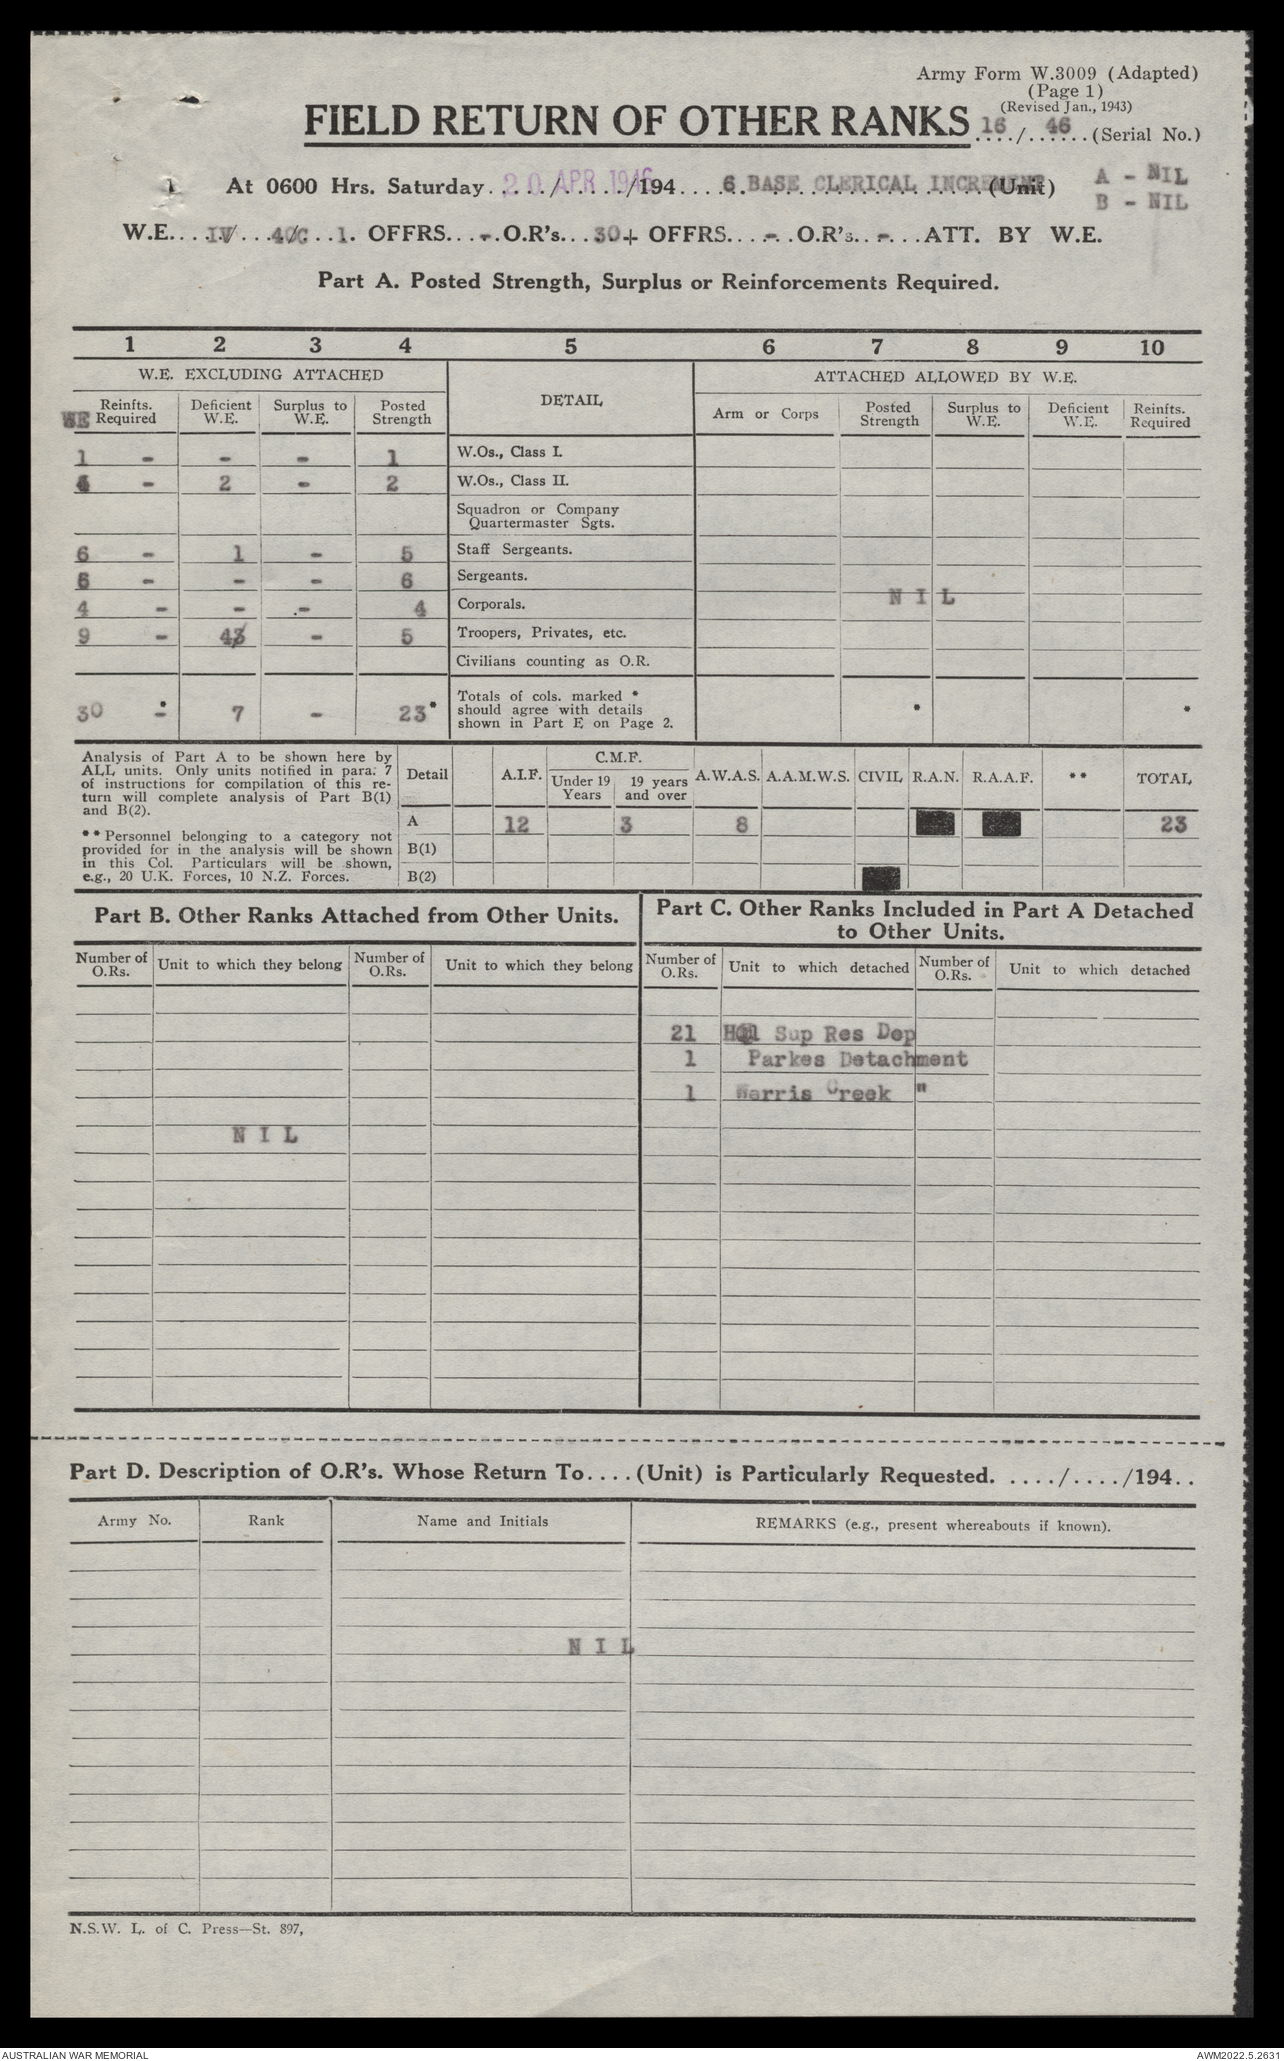 Army Form W.3009 (Adapted)
(Page 1)
(Revised Jan., 1943)
FIELD RETURN OF OTHER RANKS 16/46 (Serial No.)
1 At 0600 Hrs. Saturday 20 APR 1946 /194.... 6 BASE CLERICAL INCREMENT (Unit) A - NIL
B - NIL
W.E. IV / 40C / 1. OFFRS. - O.R's. 30 + OFFRS. - O.R's. - ATT. BY W.E.
Part A. Posted Strength, Surplus or Reinforcements Required.
1 2 3 4 5 6 7 8 9 10
W.E. EXCLUDING ATTACHED DETAIL ATTACHED ALLOWED BY W.E.
WE Reinfts. Required Deficient W.E. Surplus to W.E. Posted Strength Arm or Corps Posted Strength Surplus to W.E. Deficient W.E. Reinfts. Required
1 - - - 1 W.Os., Class I.
4 - 2 - 2 W.Os., Class II.
Squadron or Company
Quartermaster Sgts.
6 - 1 - 5 Staff Sergeants.
6 - - - 6 Sergeants.
4 - - - 4 Corporals. N I L
9 - 4 - 5 Troopers, Privates, etc.
Civilians counting as O.R.
30 - * 7 - 23 * Totals of cols. marked *
should agree with details
shown in Part E on Page 2. * *
Analysis of Part A to be shown here by
ALL units. Only units notified in para. 7
of instructions for compilation of this re-
turn will complete analysis of Part B(1)
and B(2).
** Personnel belonging to a category not
provided for in the analysis will be shown
in this Col. Particulars will be shown,
e.g., 20 U.K. Forces, 10 N.Z. Forces.
Detail A.I.F. C.M.F. Under 19 Years 19 years and over A.W.A.S. A.A.M.W.S. CIVIL R.A.N. R.A.A.F. ** TOTAL
A 12 3 8 23
B(1)
B(2)
Part B. Other Ranks Attached from Other Units.
Number of O.Rs. Unit to which they belong Number of O.Rs. Unit to which they belong
N I L
Part C. Other Ranks Included in Part A Detached
to Other Units.
Number of O.Rs. Unit to which detached Number of O.Rs. Unit to which detached
21 Sup Res Dep
1 Parkes Detachment
1 Werris Creek "
Part D. Description of O.R's. Whose Return To....(Unit) is Particularly Requested. ..../..../194..
Army No. Rank Name and Initials REMARKS (e.g., present whereabouts if known).
N I L
N.S.W. L. of C. Press—St. 897,
AUSTRALIAN WAR MEMORIAL AWM2022.5.2631